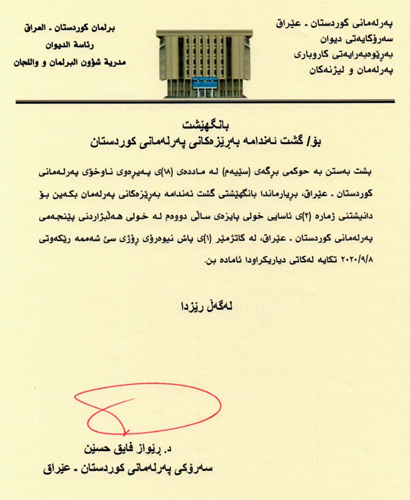 پەرلەمانی کوردستان - عێراق
سەرۆکایەتی دیوان
بەڕێوەبەرایەتی کاروباری
پەرلەمان و لیژنەکان
برلمان كوردستان - العراق
رئاسة الديوان
مديرية شؤون البرلمان و واللجان
بانگهێشت
بۆ/ گشت ئەندامە بەڕێزەکانی پەرلەمانی کوردستان
پشت بەستن بە حوکمی برگەی (سێیەم) لە ماددەی (١٨)ی پەیڕەوی ناوخۆی پەرلەمانی
کوردستان - عێراق، بڕیارماندا بانگهێشتی گشت ئەندامە بەڕێزەکانی پەرلەمان بکەین بۆ
دانیشتنی ژمارە (٢)ی ئاسایی خولی پایزەی ساڵی دووەم لە خولی هەڵبژاردنی پێنجەمی
پەرلەمانی کوردستان - عێراق، لە کاتژمێر (١)ی پاش نیوەڕۆی ڕۆژی سێ شەممە رێکەوتی
٢٠٢٠/٩/٨ تکایە لەکاتی دیاریکراودا ئامادە بن.
لەگەڵ رێزدا
د. ڕێواز فایق حسێن
سەرۆکی پەرلەمانی کوردستان - عێراق